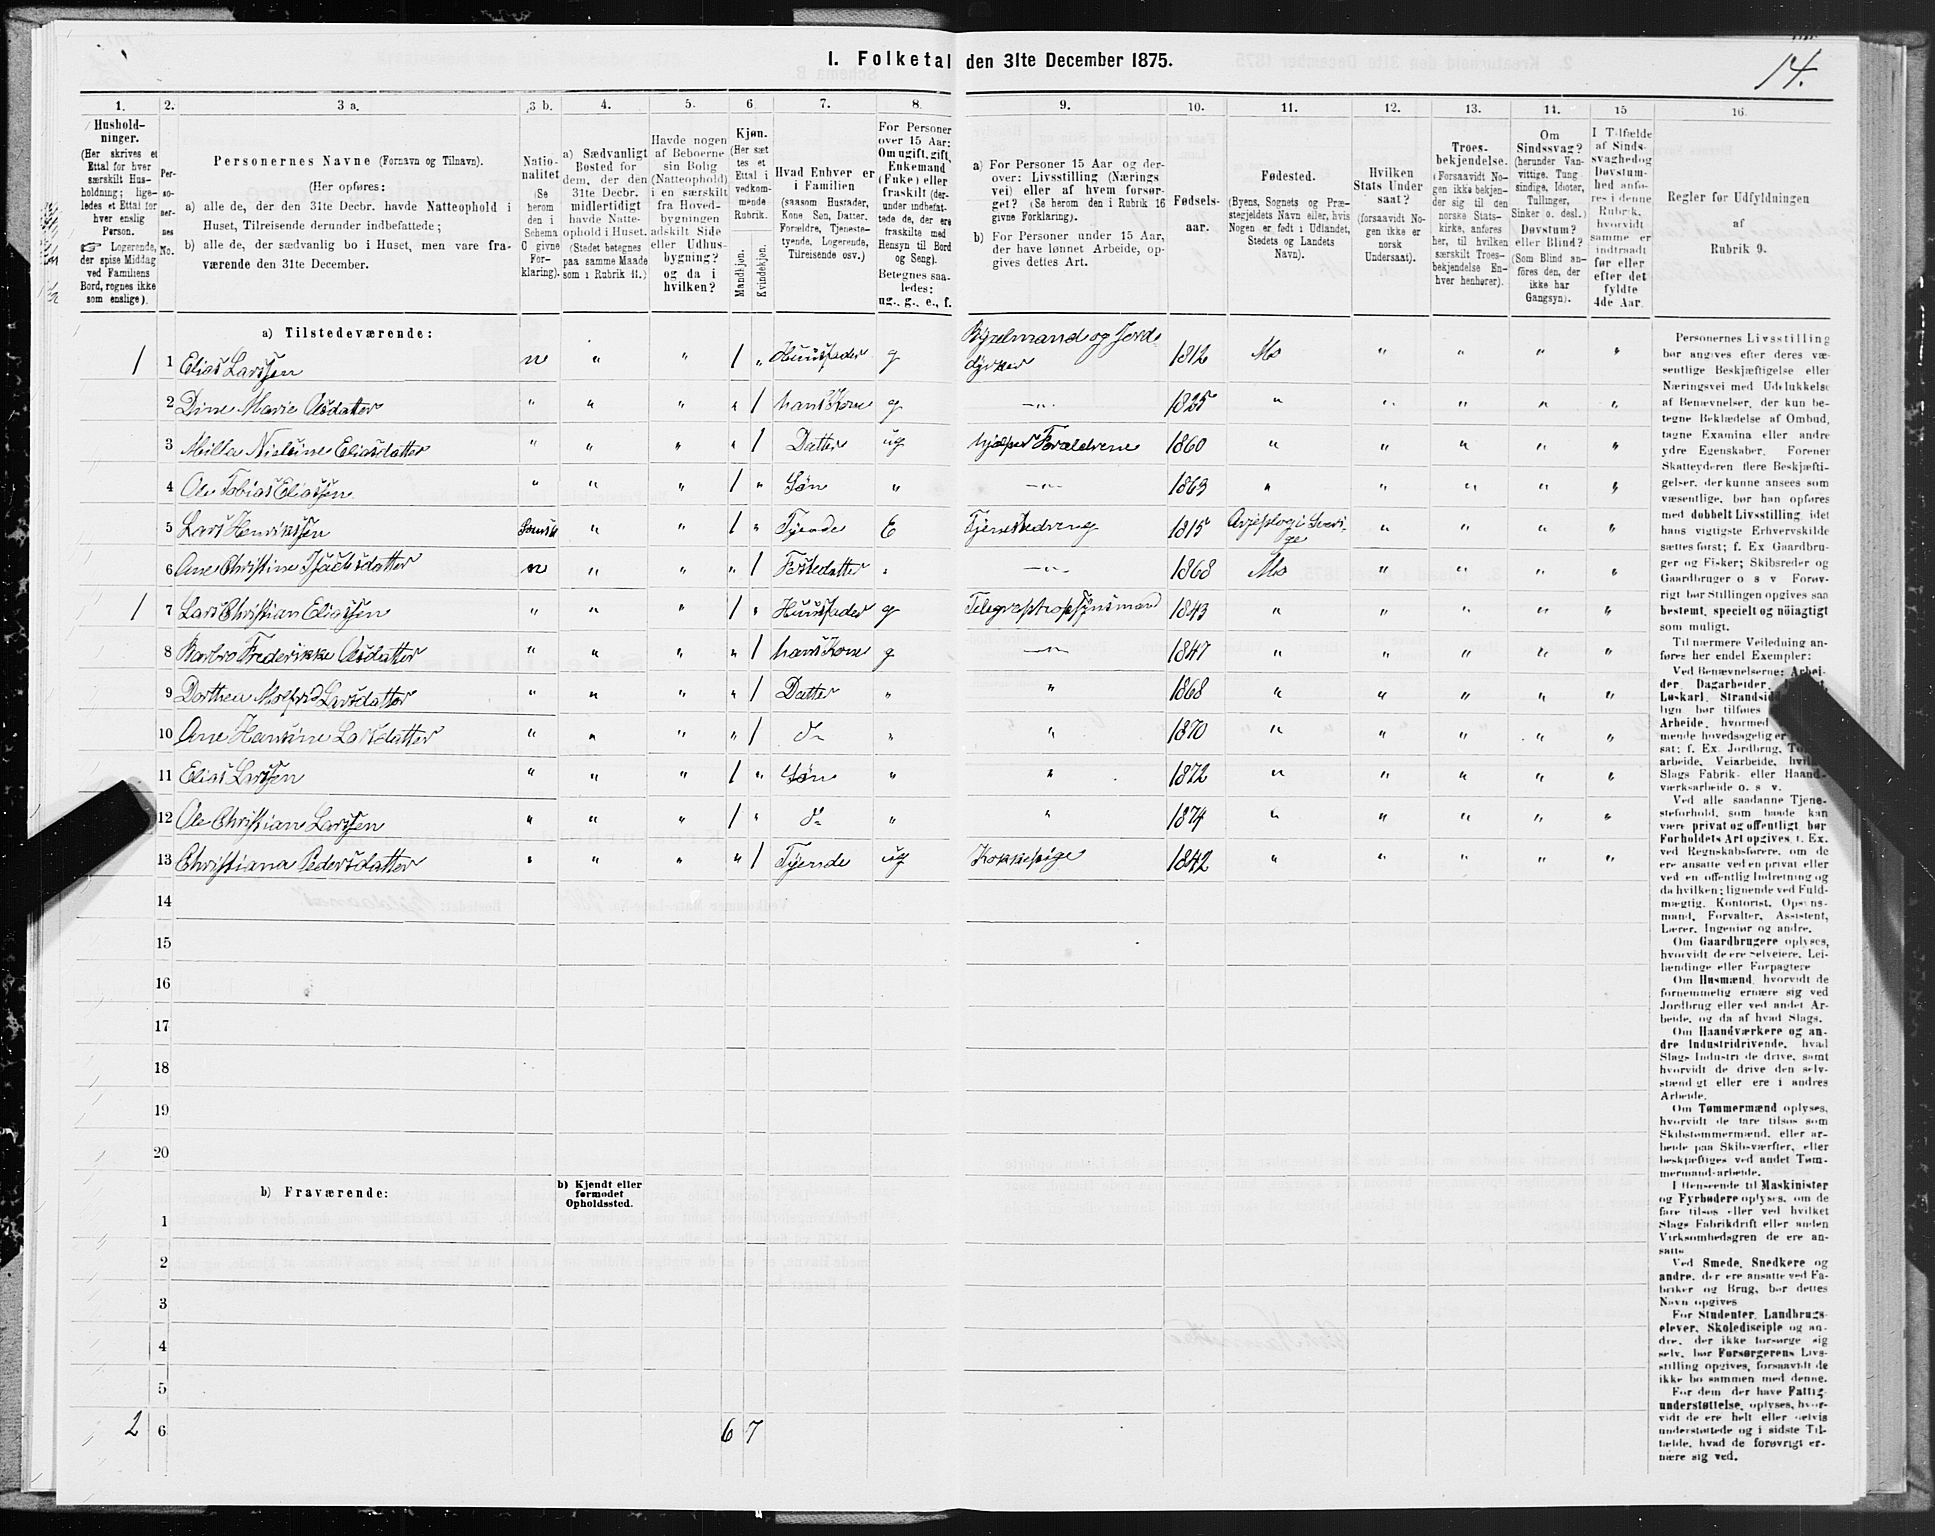 14.
1. Folketal den 31te December 1875.
1. 2. 3 a. 3 b. 4. 5. 6 7. 8. 9. 10. 11. 12. 13. 14. 15 16.
Hushold-
ninger.
(Her skrives et
Ettal for hver
særskilt Hus-
holdning; lige-
ledes et Ettal for
hver enslig
Person.
☞ Logerende,
der spise Middag
ved Familiens
Bord, regnes ikke
som enslige).
Per-
so-
ner-
nes
No.
Personernes Navne (Fornavn og Tilnavn).
(Her opføres:
a) alle de, der den 31te Decbr. havde Natteophold i
Huset, Tilreisende derunder indbefattede;
b) alle de, der sædvanlig bo i Huset, men vare fra-
værende den 31te December.
Natio-
nalitet
(Se
herom
den i
Schema
C givne
For-
klaring).
a) Sædvanligt
Bosted for
dem, der den
31te Decbr.
midlertidigt
havde Natte-
ophold i Huset.
(Stedet betegnes
paa samme Maade
som i Rubrik 11.)
Havde nogen
af Beboerne
sin Bolig
(Natteophold)
i en særskilt
fra Hoved-
bygningen
adskilt Side
eller Udhus-
bygning?
og da i
hvilken?
Kjøn.
(Her sæt
tes et
Ettal i
vedkom-
mende
Rubrik.
Mandkjøn.
Kvindekjøn.
Hvad Enhver er
i Familien
(saasom Husfader,
Kone Søn, Datter.
Forældre, Tjeneste-
tyende, Logerende,
Tilreisende osv.)
For Personer
over 15 Aar:
Om ugift, gift,
Enkemand
(Enke) eller
fraskilt (der-
under indbefat-
tede de, der ere
fraskilte med
Hensyn til Bord
og Seng).
Betegnes saa-
ledes:
ug., g., e., f.
a) For Personer 15 Aar og der-
over: Livsstilling (Nærings
vei) eller af hvem forsør-
get? (Se herom den i Rubrik 16
givne Forklaring).
b) For Personer under 15 Aar,
der have lønnet Arbeide, op-
gives dettes Art.
Fødsels-
aar.
Fødested.
(Byens, Sognets og Præ-
stegjeldets Navn eller, hvis
Nogen er født i Udlandet,
Stedets og Landets
Navn).
Hvilken
Stats Under
saat?
(forsaavidt No-
gen ikke er
norsk
Undersaat).
Troes-
bekjendelse.
(Forsaavidt No-
gen ikke bekjen-
der sig til den
norske Stats-
kirke, anføres
her, til hvilken
særskilt Troes-
bekjendelse En-
hver henhører).
Om
Sindssvag?
(herunder Van-
vittige. Tung
sindige, Idioter,
Tullinger,
Sinker o. desl.)
Døvstum?
eller Blind?
(Som Blind an-
føres den, der
ikke har
Gangsyn).
I Tilfælde
af Sinds-
svaghed og
Døvstum-
hed anfø-
res i denne
Rubrik,
hvorvidt
samme er
indtraadt
før eller
efter det
fyldte
4de Aar.
Regler for Udfyldningen
af
Rubrik 9.
a) Tilstedeværende:
1 1 Elias Larssen n " " 1 " Huusfader g Bygselmand og Jord-
dyrker 1812 Mo " " " "
2 Dine Marie Olsdatter " " " " 1 hans Kone g —"— 1825 " " " " "
3 Milla Nielsine Eliasdatter " " " " 1 Datter ug hjælper Forældrene 1860 " " " " "
4 Ole Tobias Eliassen " " " 1 " Søn " —"— 1863 " " " " "
5 Lars Henrikssen " " 1 " Tyende E Tjenestedreng 1815 Arjeplog i Sveri-
ge " " " "
6 Ane Christine Isachsdatter n " " " 1 Fostedatter " —"— 1868 Mo " " " "
1 7 Lars Christian Eliassen " " " 1 " Huusfader g Telegraphopsynsmand 1843 " " " " "
8 Barbro Frederikke Olsdatter " " " " 1 hans Kone g —"— 1847 " " " " "
9 Dorthea Molfrid Larsdatter " " " " 1 Datter " " 1868 " " " " "
10 Ane Hansine Larsdatter " " " " 1 do " " 1870 " " " " "
11 Elias Larssen " " " 1 " Søn " " 1872 " " " " "
12 Ole Christian Larssen " " " 1 " do " " 1874 " " " " "
13 Christiana Pedersdatter " " " " 1 Tyende ug Kokkepige 1842 " " " " "
14
15
16
17
18
19
20
b) Fraværende:
b) Kjendt eller
formodet
Opholdssted.
1
2
3
4
5
2 6 6 7
Personernes Livsstilling
bør angives efter deres væ-
sentlige Beskjæftigelse eller
Næringsvei med Udelukkelse
af Benævnelser, der kun be-
tegne Beklædelse af Ombud,
tagne Examina eller andre
ydre Egenskaber. Forener
Skatteyderen flere Beskjæfti-
gelser, der kunne ansees som
væsentlige, bør han opføres
med dobbelt Livsstilling, idet
hans vigtigste Erhvervskilde
sættes først; f. Ex Gaardbru-
ger og Fisker; Skibsreder og
Gaardbruger o s v Forøv-
rigt bør Stillingen opgives saa
bestemt, specielt og nöiagtigt
som muligt.
Til nærmere Veiledning an-
føres her endel Exempler:
Ved Benævnelserne: Arbei-
der Dagarbeider
Løskarl, Strandsid
lign bør tilføres
Arbeide, hvormed
mende hovedsagelig er
sat; f. Ex. Jordbrug,
arbeide, Veiarbeide,
Slags Fabrik- eller Haand-
værksarbeide o. s v.
Ved alle saadanne Tjene-
steforhold, som baade kan
være privat og offentligt bør
Forholdets Art opgives f. Ex.
ved Regnskabsførere, om de
ere ansatte ved en privat eller
ved en offentlig Indretning og
da hvilken; lignende ved Fuld-
mægtig, Kontorist, Opsyns-
mand, Forvalter, Assistent,
Lærer, Ingeniør og andre.
Om Gaardbrugere oplyses,
hvorvidt de ere Selveiere, Lei-
lændinge eller Forpagtere
Om Husmænd, hvorvidt de
fornemmelig ernære sig ved
Jordbrug eller ved andet Ar-
beide, og da af hvad Slags.
Om Haandværkere og an-
dre Industridrivende, hvad
Slags Industri de drive, samt
hvorvidt de drive den selv-
stændigt eller ere i andres
Arbeide.
Om Tømmermænd oplyses,
hvorvidt de fare tilsøs som
Skibstømmermænd, eller ar-
beide paa Skibsværfter, eller
beskjæftiges ved andet Tøm-
mermand-arbeide.
I Henseende til Maskinister
og Fyrbødere oplyses, om de
fare tilsøs eller ved hvilket
Slags Fabrikdrift eller anden
Virksomhedsgren de ere an-
satte
Ved Smede, Snedkere og
andre, der ere ansatte ved Fa-
briker og Brug, bør dettes
Navn opgives
For Studenter, Landbrugs-
elever, Skoledisciple og an-
dre, der ikke forsørge sig
selv, bør Forsørgerens Livs-
stilling opgives, forsaavidt de
ikke bo sammen med denne.
For dem, der have Fattig-
understøttelse, oplyses, hvor-
vidt de ere helt eller delvis
understøttede og i sidste Til-
fælde, hvad de forøvrigt er-
nære sig ved.